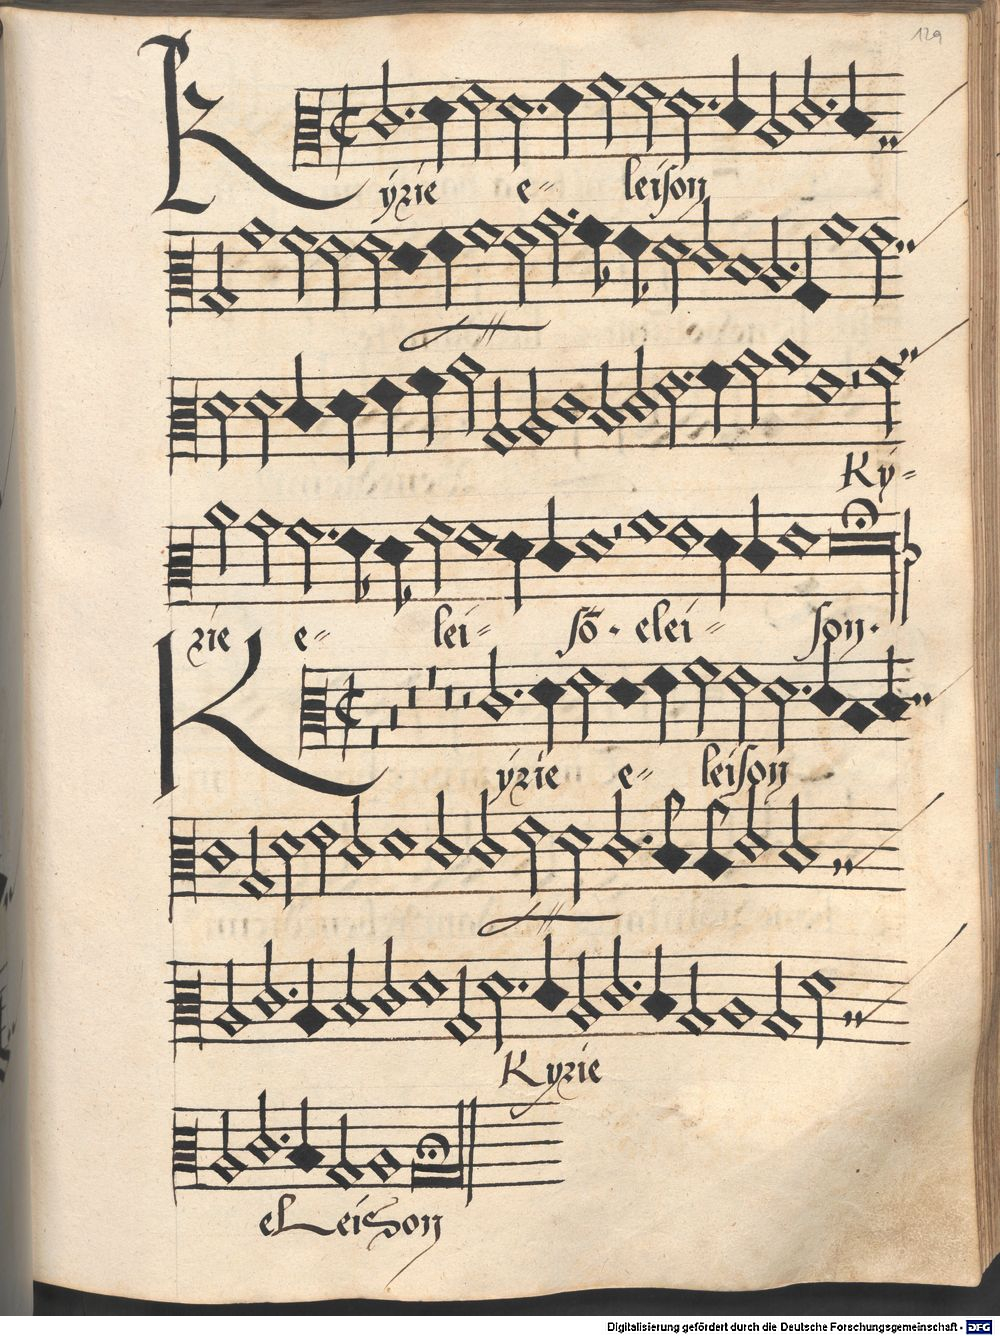 129
Kyrie e- leison
Ky-
rie e- lei- sō. elei- son.
Kyrie e- leison
Kyrie
eLeison
Digitalisierung gefördert durch die Deutsche Forschungsgemeinschaft - DFG